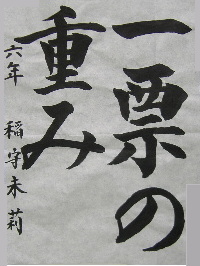 一票の
重み
六年 稲守未莉